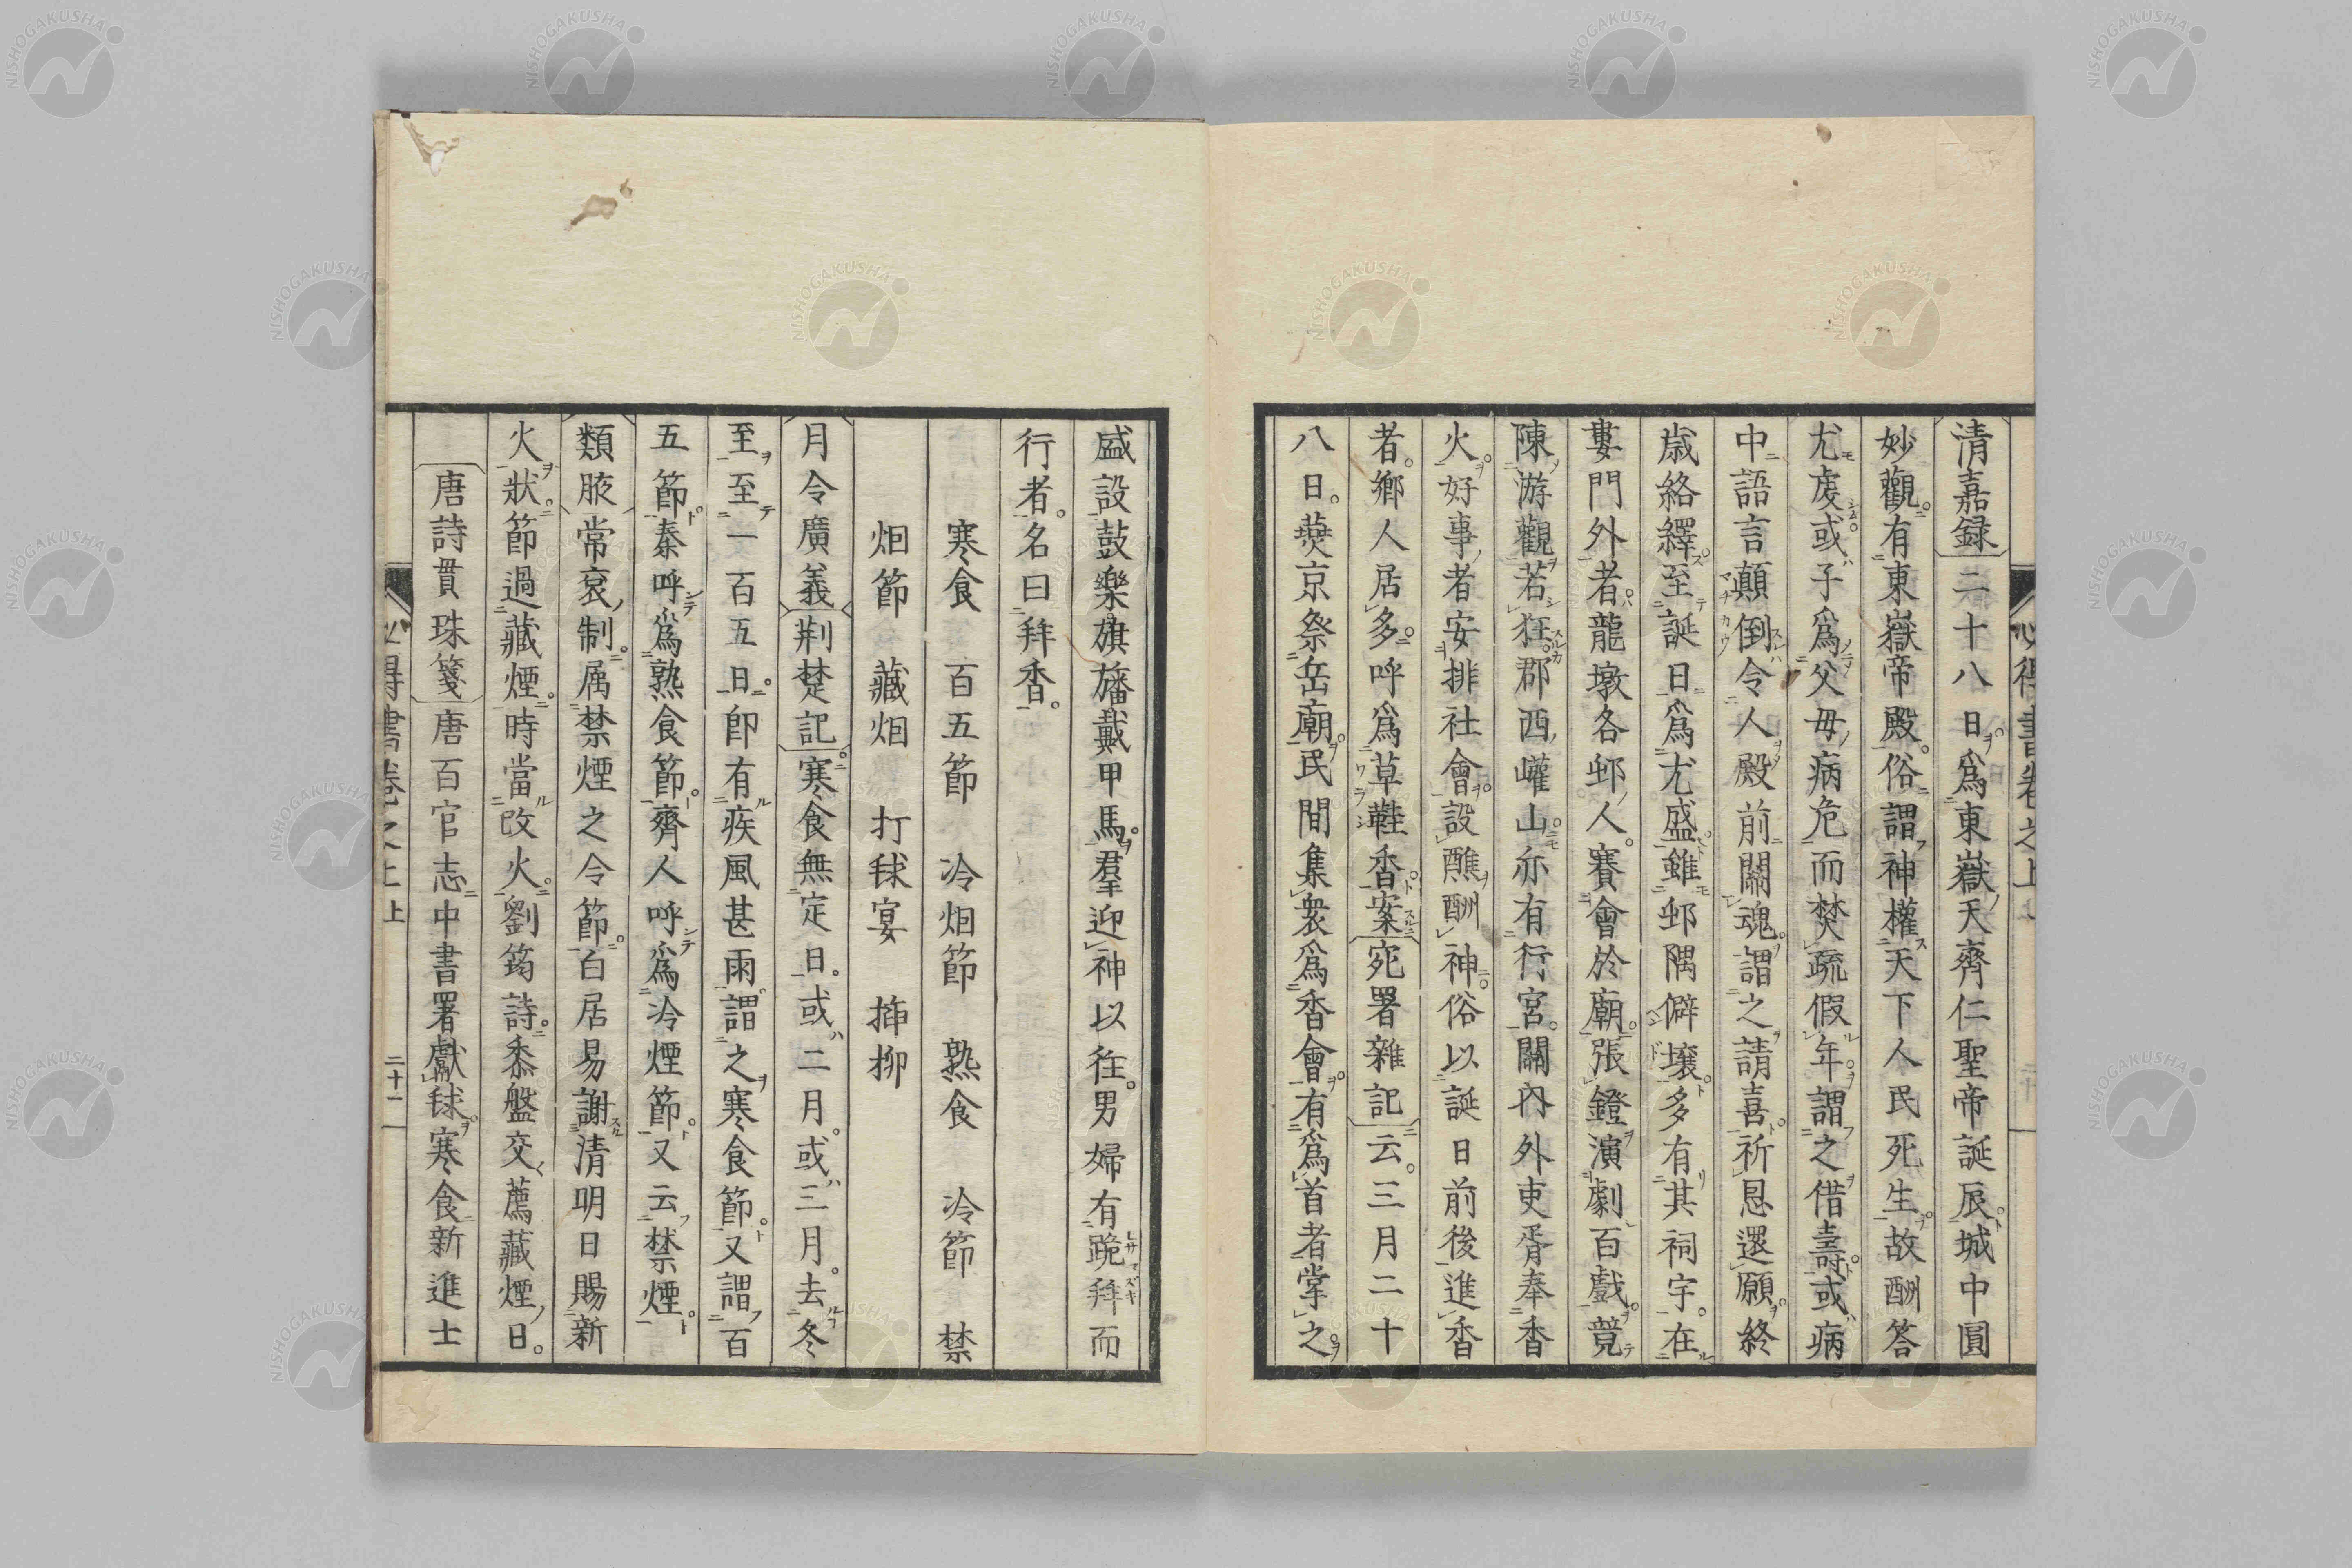 清嘉録二十八日爲東嶽天齊仁聖帝誕辰城中圓
妙觀有東嶽帝殿俗謂神權天下人民死生故酬答
尤虔或子爲父母病危而焚疏假年謂之借壽或病
中語言顛倒令人殿前關魂謂之請喜祈恩還願終
歳絡繹至誕日爲尤盛雖邨隅僻壤多有其祠宇在
婁門外者龍墩各邨人賽會於廟張鐙演劇百戲竸
陳游觀若狂郡西㠠山亦有行宮關內外吏胥奉香
火好事者安排社會設醮酬神俗以誕日前後進香
者鄉人居多呼爲草鞋香案宛署雜記云三月二十
八日燕京祭岳廟民間集衆爲香會有爲首者掌之
盛設鼓樂旗旛戴甲馬羣迎神以徃男婦有跪拜而
行者名曰拜香
寒食 百五節 冷烟節 熟食 冷節 禁
烟節 藏烟 打毬宴 揷柳
月令廣義荆楚記寒食無定日或二月或三月去冬
至至一百五日卽有疾風甚雨謂之寒食節又謂百
五節秦呼爲熟食節齊人呼爲冷煙節又云禁煙
類腋常衮制属禁煙之令節白居易謝清明日賜新
火狀節過藏煙時當改火劉筠詩黍盤交薦藏煙日
唐詩貫珠箋唐百官志中書署獻毬寒食新進士
心得書卷之上 上 二十二